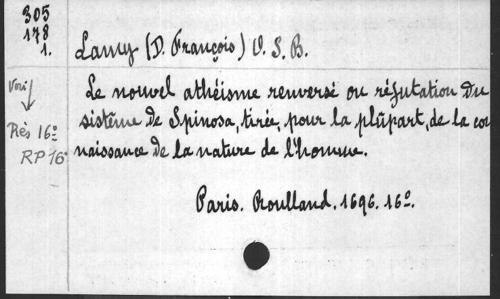 305
178
1.
Lamy (D. François) O. S. B.
Le nouvel athéisme renversé ou réfutation du
sistême de Spinosa, tirée, pour la plûpart, de la con
naissance de la nature de l'homme.
Voir
Rés 16º
RP 16
Paris. Roulland. 1696. 16º.